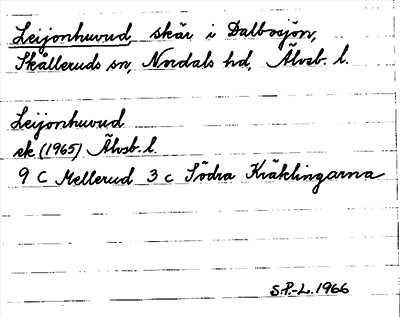 Leijonhuvud, skär i Dalbosjön,
Skålleruds sn, Nordals hd, Älvsb. l.
Leijonhuvud
ek (1965) Älvsb. l.
9 C Mellerud 3 c Södra Kräklingarna
S.P.-L. 1966